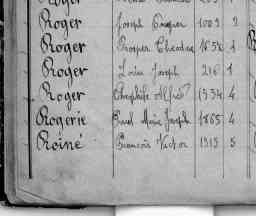 Roger Joseph Prosper 1089 2
Roger Prosper Théodore 1852 1
Roger Louis Joseph 216 1
Roger Théophile Alfred 1334 4
Rogerie Paul Marie Joseph 1865 4
Roiné François Victor 1919 5